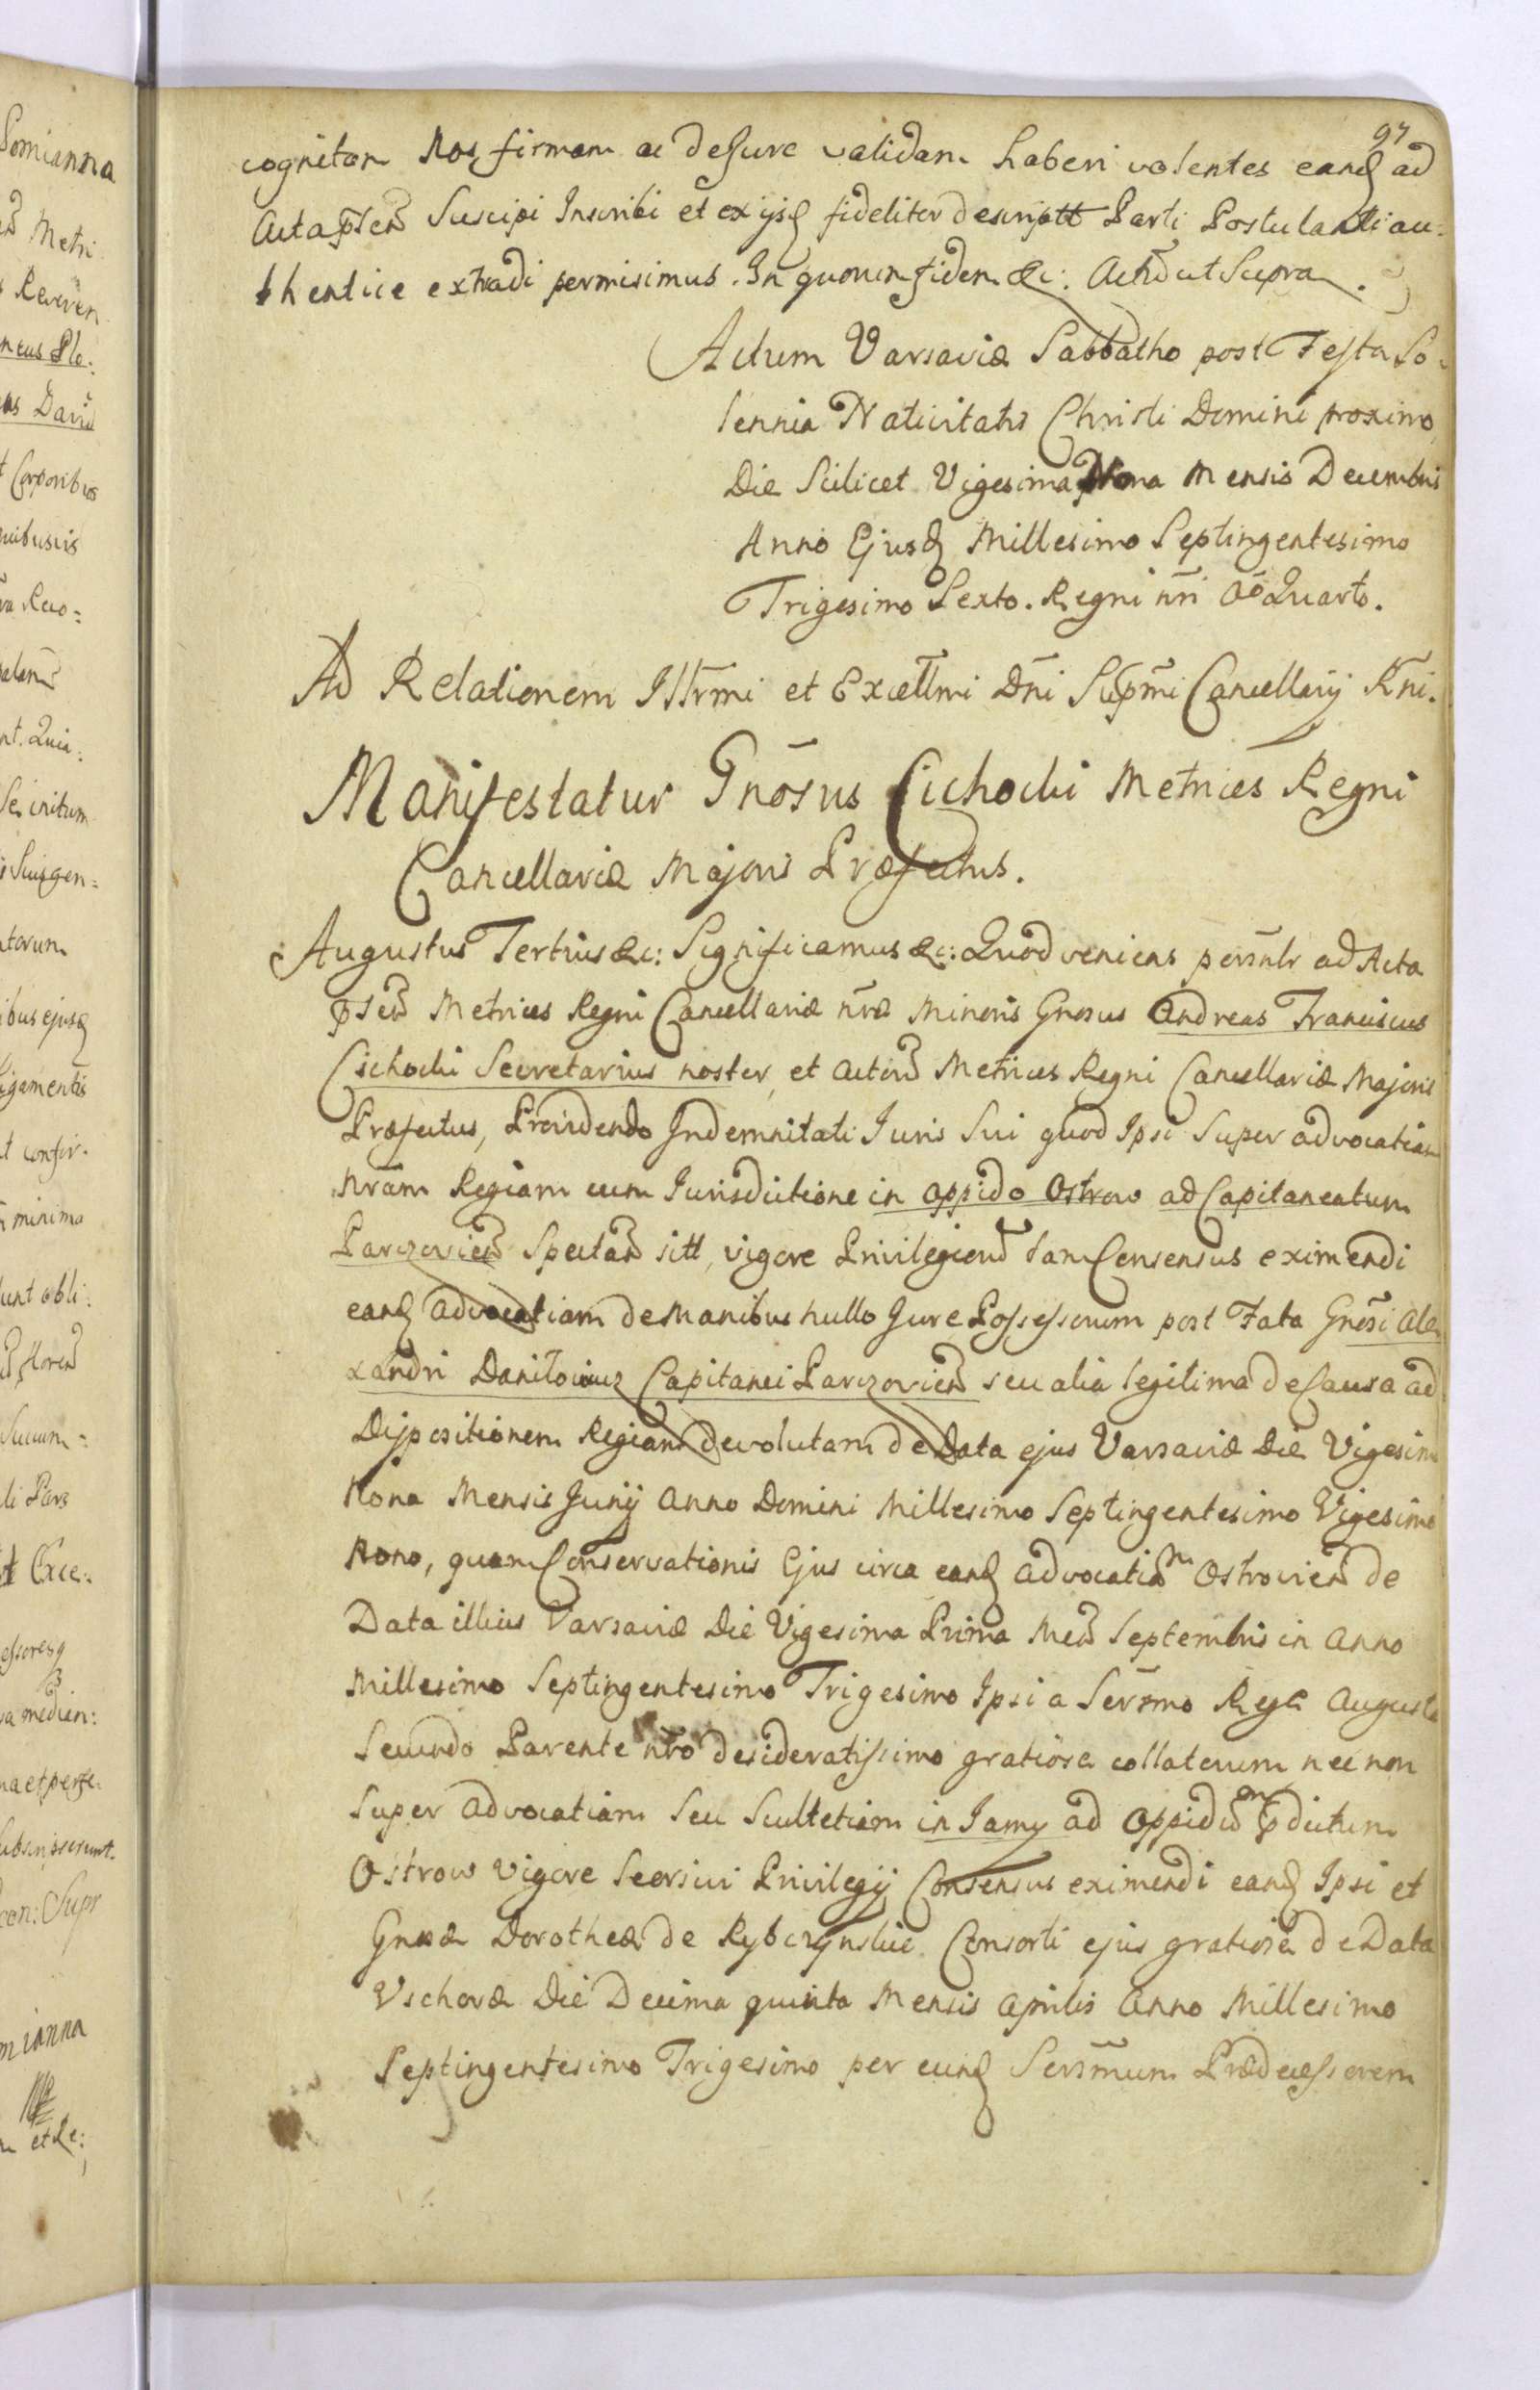 97
cognitam Nos firmam ac de Jure validam haberi volentes eandꝫ ad
Acta pñtia Suscipi Inscribi et ex ijsdꝫ fideliter descriptt Parti Postulanti au=
thentice extradi permisimus. In quorum fidem &c: Actũ ut Supra.
Actum Varsaviæ Sabbatho post Festa So=
lennia Nativitatis Christi Domini proximo
Die Scilicet Vigesima Nona Mensis Decembris
Anno Ejusdꝫ Millesimo Septingentesimo
Trigesimo Sexto. Regni nr̄i Aõ Quarto.
Ad Relationem Illr̄mi et Excell̄mi Dn̄i Supr̄mi Cancellarij Rn̄i.
Manifestatur Gnōsus Cichocki Metrices Regni
Cancellariæ Majoris Præfectus.
Augustus Tertius &c: Significamus &c: Quod veniens persn̄lr ad Acta
pñtia Metrices Regni Cancellariæ nr̄æ Minoris Gnosus Andreas Franciscus
Cichocki Secretarius noster, et Actorũ Metrices Regni Cancellariæ Majoris
Præfectus, Providendo Indemnitati Juris Sui quod Ipsi Super Advocatiam
Nr̄am Regiam cum Jurisdictione in Oppido Ostrow ad Capitaneatum
Parczovien̄ Spectan̄ sitt, vigore Privilegiorũ tam Consensus eximendi
eandꝫ Advocatiam de Manibus nullo Jure Possessorum post Fata Gnōsi Ale
xandri Daniłowicz Capitanei Parczovien̄ seu alia legitima de Causa ad
Dispositionem Regiam devolutam de Data ejus Varsaviæ Die Vigesima
Nona Mensis Junij Anno Domini Millesimo Septingentesimo Vigesimo
Nono, quam Conservationis Ejus circa eandꝫ Advocatiam Ostrovien̄ de
Data illius Varsaviæ Die Vigesima Prima Men̄ Septembris in Anno
Millesimo Septingentesimo Trigesimo Ipsi a Serr̄mo Rege Augusto
Secundo Parente nr̄o desideratissimo gratiose collatorum nec non
Super Advocatiam Seu Scultetiam in Jamy ad Oppidum p̄dictum
Ostrow vigore Seorsivi Privilegij Consensus eximendi eandꝫ Ipsi et
Gnosæ Dorotheæ de Rybczynskie Consorti ejus gratiose de Data
Vschovæ Die Decima quinta Mensis Aprilis Anno Millesimo
Septingentesimo Trigesimo per eundꝫ Serr̄mum Prædecessorem